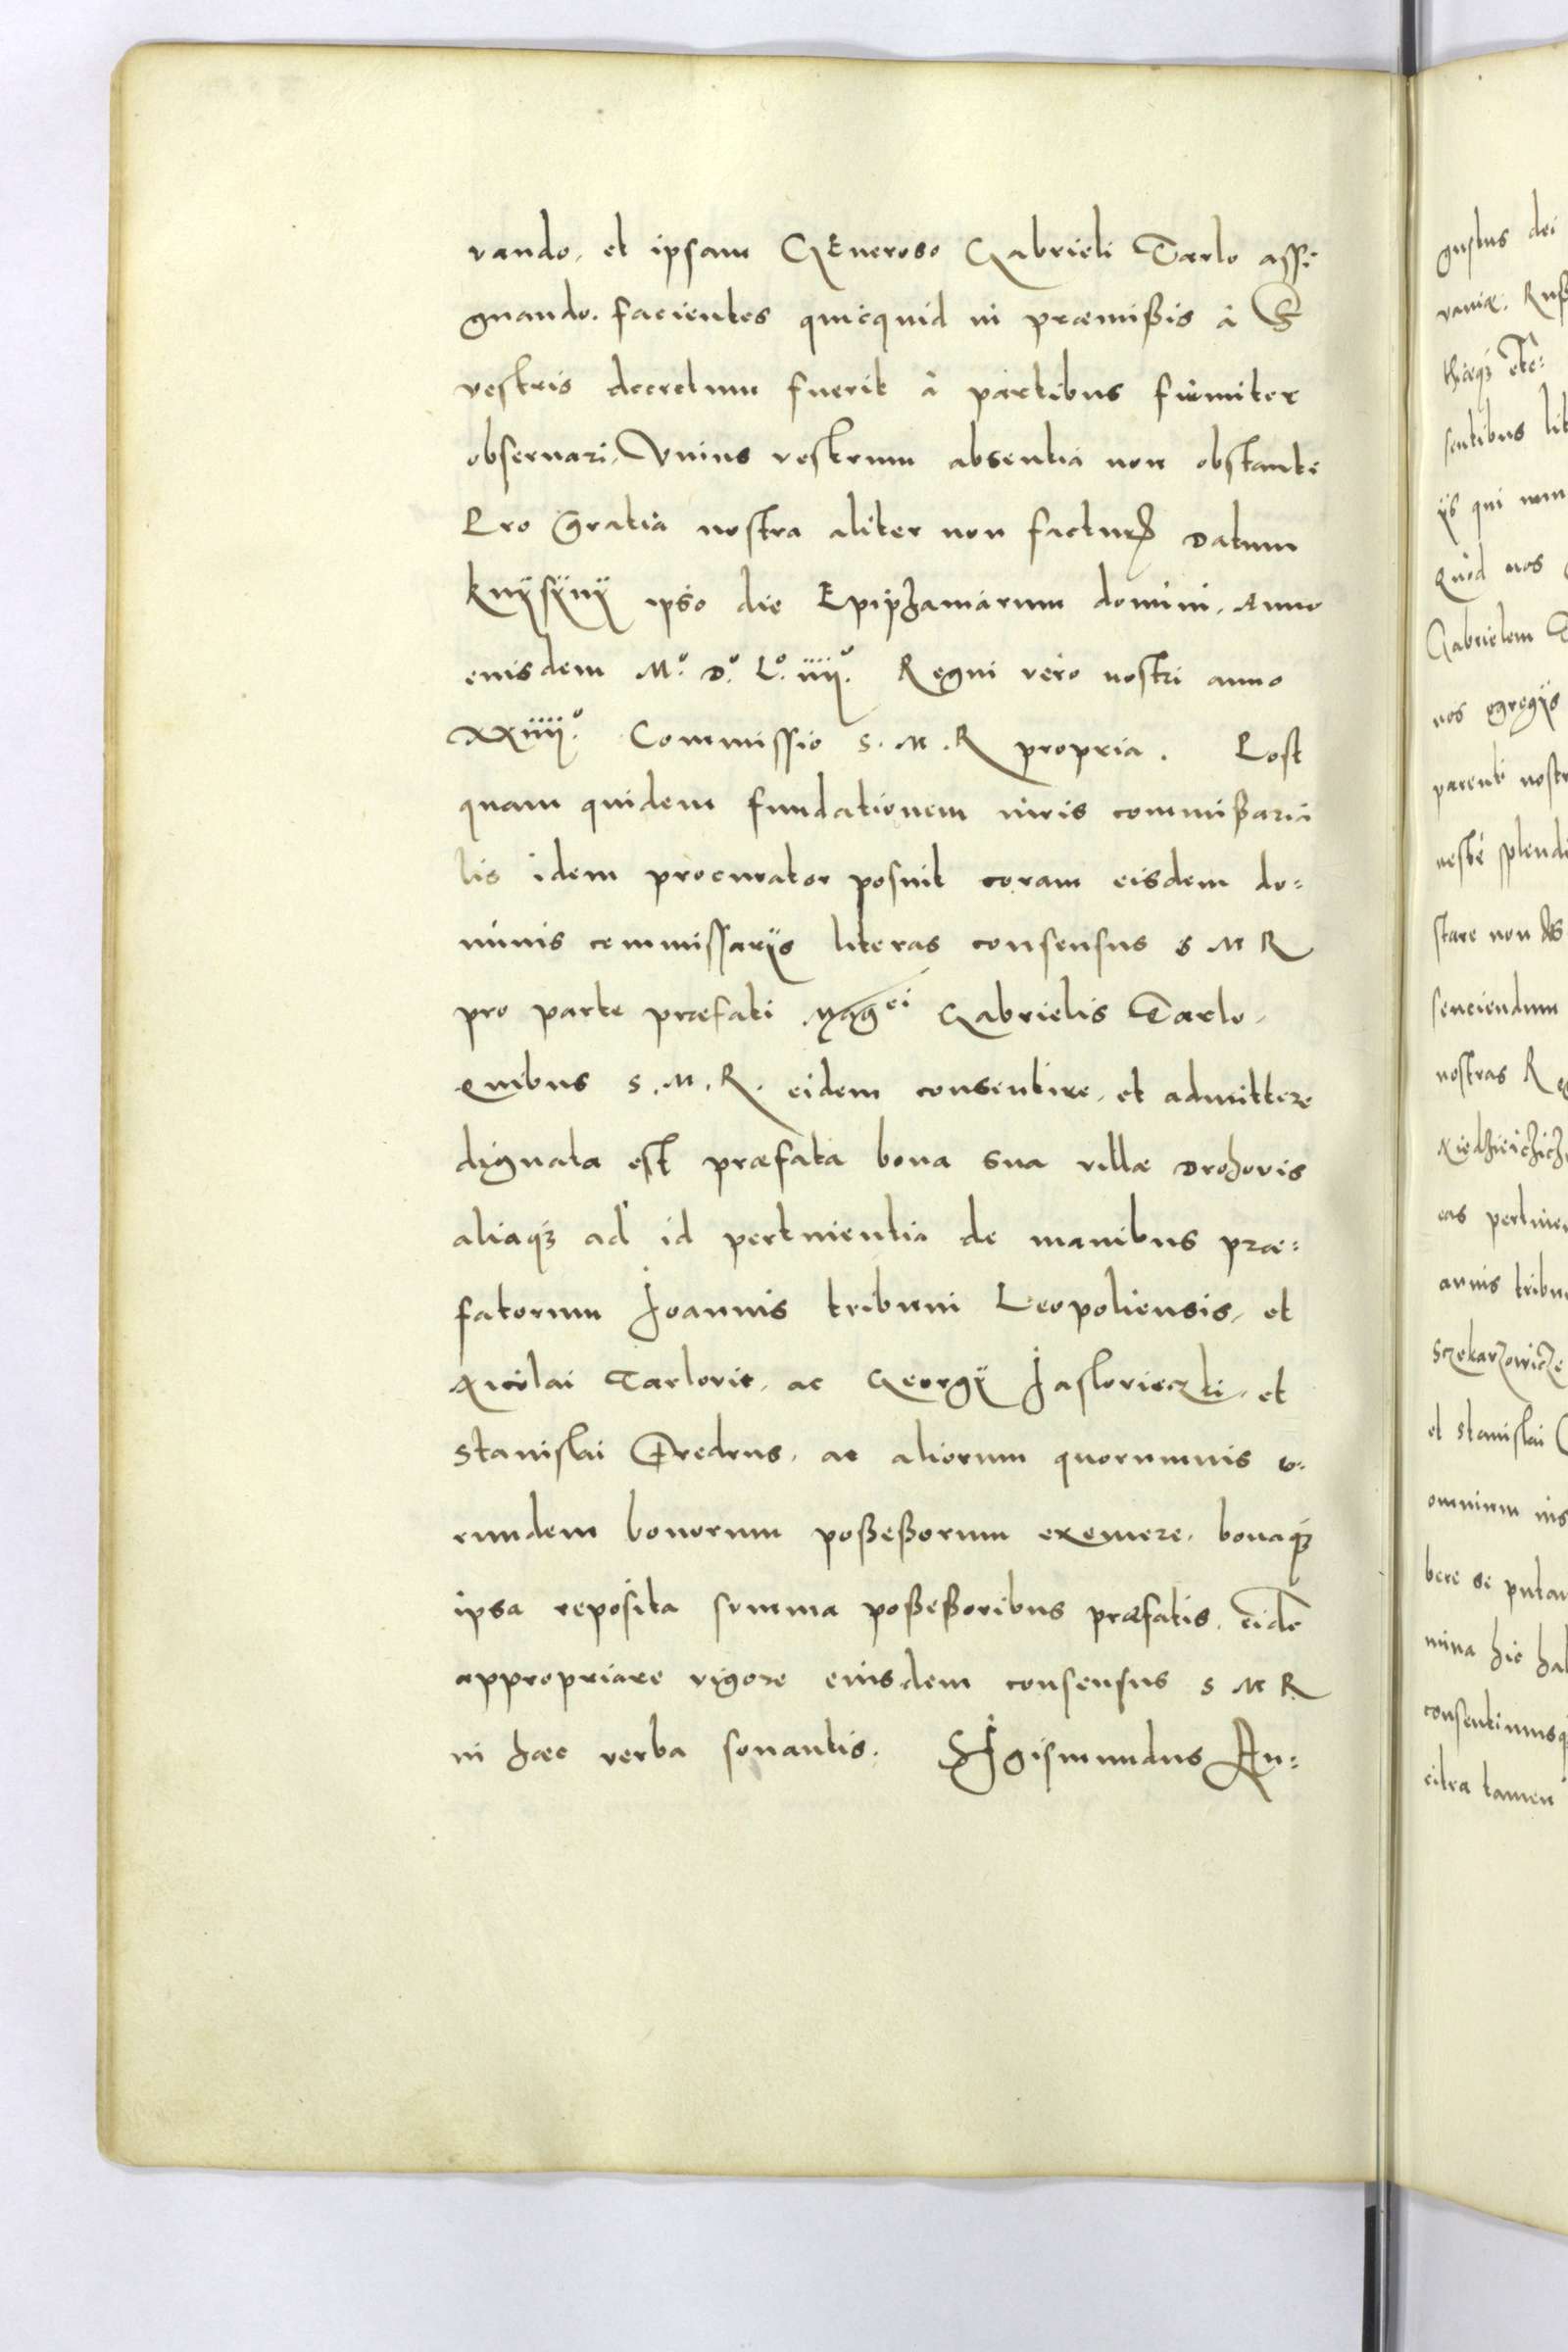 vando, et ipsam GEneroso Gabrieli Tarlo assi
gnando. facientes quicquid in præmißis â S
vestris decretum fuerit â partibus firmiter
obseruari, Vnius vestrum absentia non obstante
Pro gratia nostra aliter non factur Datum
Knÿsÿnÿ ipso die Epiphaniarum domini, Anno
eiusdem Mº. Dº. Lº. iiiiº. Regni vero nostri anno
xxiiiiº. Commissio S. M. R propria. Post
quam quidem fundationem iuris commißaria
lis idem procurator posuit coram eisdem do=
minis commissarijs literas consensus S M R
pro parte præfati Magci Gabrielis Tarlo,
Quibus S. M. R. eidem consentire, et admittere
dignata est præfata bona sua villæ Drohovis
aliaqȝ ad id pertinentia de manibus præ=
fatorum Joannis tribuni Leopoliensis, et
Nicolai Tarlovie, ac Georgÿ Jaslovieczki, et
Stanislai Fredrus, ac aliorum quorumuis e=
rundem bonorum poßeßorum exemere, bonaqȝ
ipsa reposita summa poßeßoribus præfatis, eidē
appropriare vigore eiusdem consensus S M R
in hæc verba sonantis. SIgismundus Au=
gustus dei
vaniæ, Ruß
thæqȝ etc=
sentibus lit
ijs qui
Quod nos
Gabrielem T
nos egregijs
parenti nostr
stare non
senciendum
nostras R
eas pertine
annis tribu
Sczekarzowicze
et Stanislai
omnium ius
bere se puta
mina hic ha
consentimusq
citra tamen